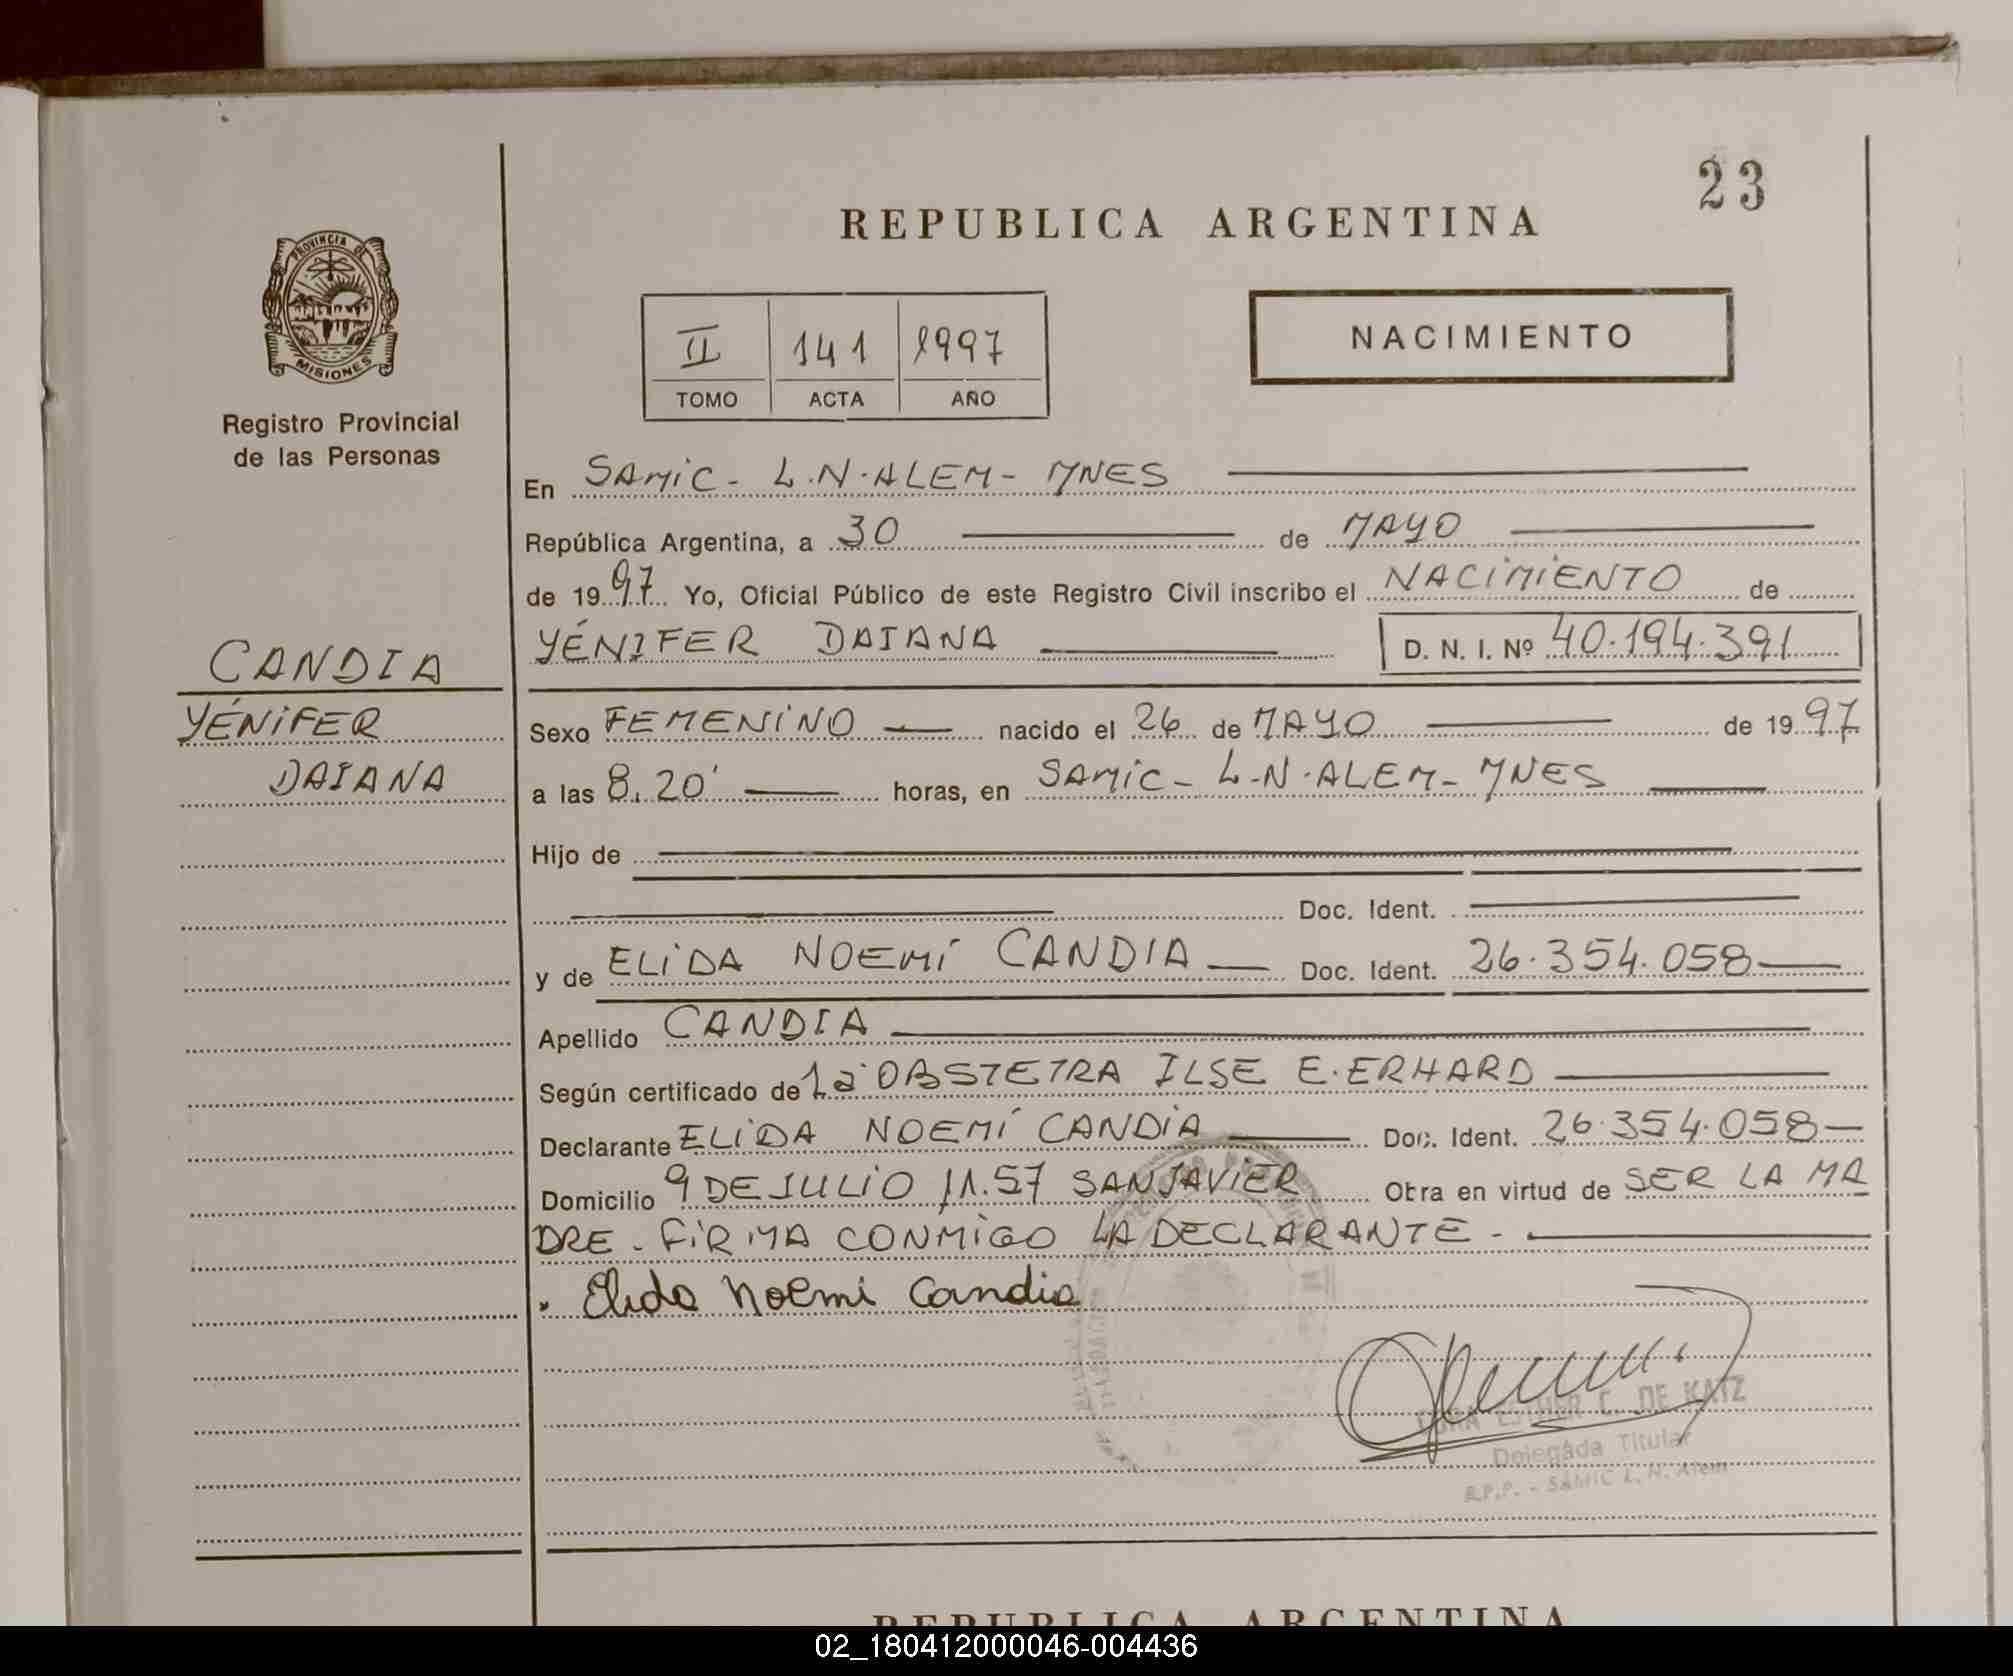 23
REPUBLICA ARGENTINA
PROVINCIA DE
MISIONES
Registro Provincial
de las Personas
II 141 1997
TOMO ACTA AÑO
NACIMIENTO
En SAMIC - L.N.ALEM - MNES
República Argentina, a 30 de MAYO
de 1997 Yo, Oficial Público de este Registro Civil inscribo el NACIMIENTO de
YÉNIFER DAIANA D. N. I. Nº 40.194.391
CANDIA
YÉNIFER
DAIANA
Sexo FEMENINO nacido el 26 de MAYO de 1997
a las 8.20' horas, en SAMIC - L.N.ALEM - MNES
Hijo de
Doc. Ident.
y de ELIDA NOEMÍ CANDIA Doc. Ident. 26.354.058
Apellido CANDIA
Según certificado de La OBSTETRA ILSE E. ERHARD
Declarante ELIDA NOEMÍ CANDIA Doc. Ident. 26.354.058
Domicilio 9 DE JULIO 11.57 SAN JAVIER Obra en virtud de SER LA MA
DRE - FIRMA CONMIGO LA DECLARANTE -
Elida Noemi Candia
ESTHER C. DE KATZ
Delegada Titular
R.P.P. - SAMIC L. N. Alem
REPUBLICA ARGENTINA
02_180412000046-004436